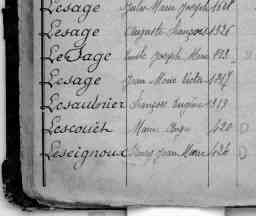 Lesage Jules Marie Joseph 1628
Lesage Auguste François 1526
LeSage Emile Joseph Marie
Lesage Jean Marie Victor
Lesaulnier François Eugène 1313
Lescouët Marie Ange 620
Leseignoux Jean Marie 626